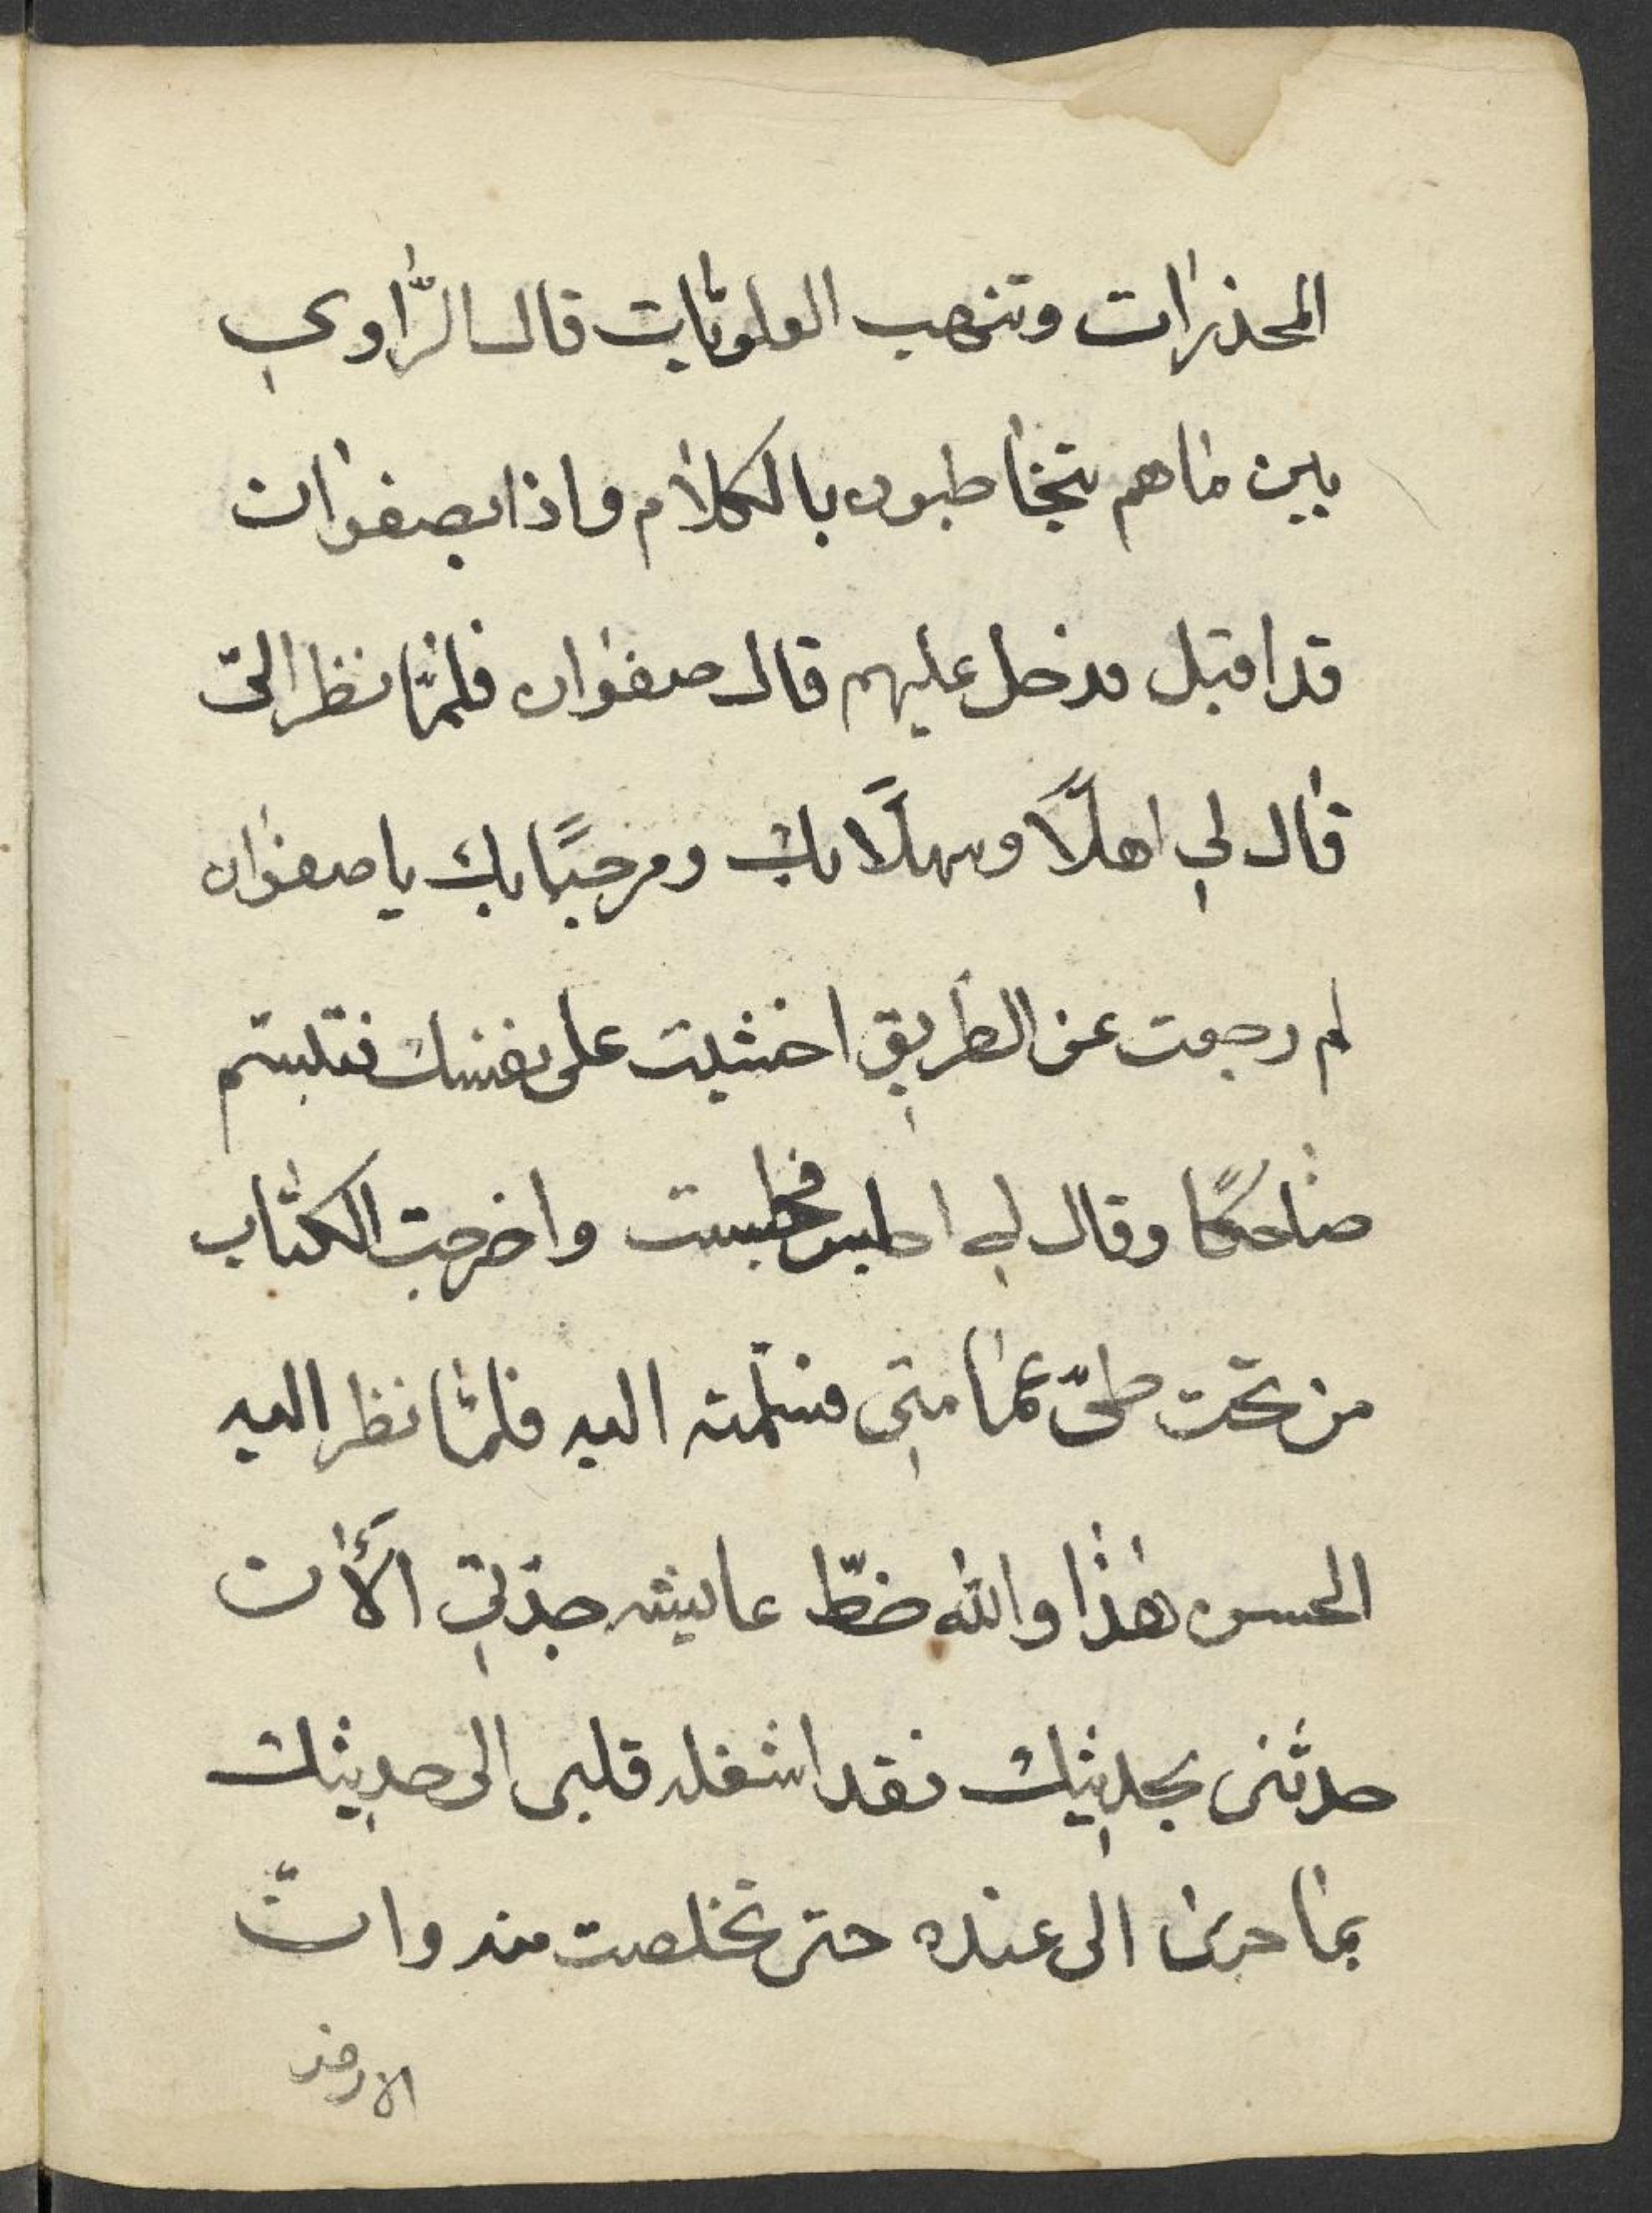 المخدرات وتنهب العلويات قال الرّاوي
بين ما هم يتخاطبون بالكلام واذا بصفوان
قد اقبل فدخل عليهم قال صفوان فلمّا نظر اليّ
قال لي اهلًا وسهلًا بك ومرحبًا بك يا صفوان
لم رجعت عن الطريق اخشيت على نفسك فتبسم
ضاحكًا وقال لي اجلس فجلست واخرجت الكتاب
من تحت طيّ عمامتي فسلّمته اليه فلمّا نظر اليه
الحسن هذا والله خطّ عايشه جدّتي الأن
حدثني بحديثك فقد اشغله قلبي الى حديثك
بما جرى الى عنده حتى تخلصت منه وانّ
الارض